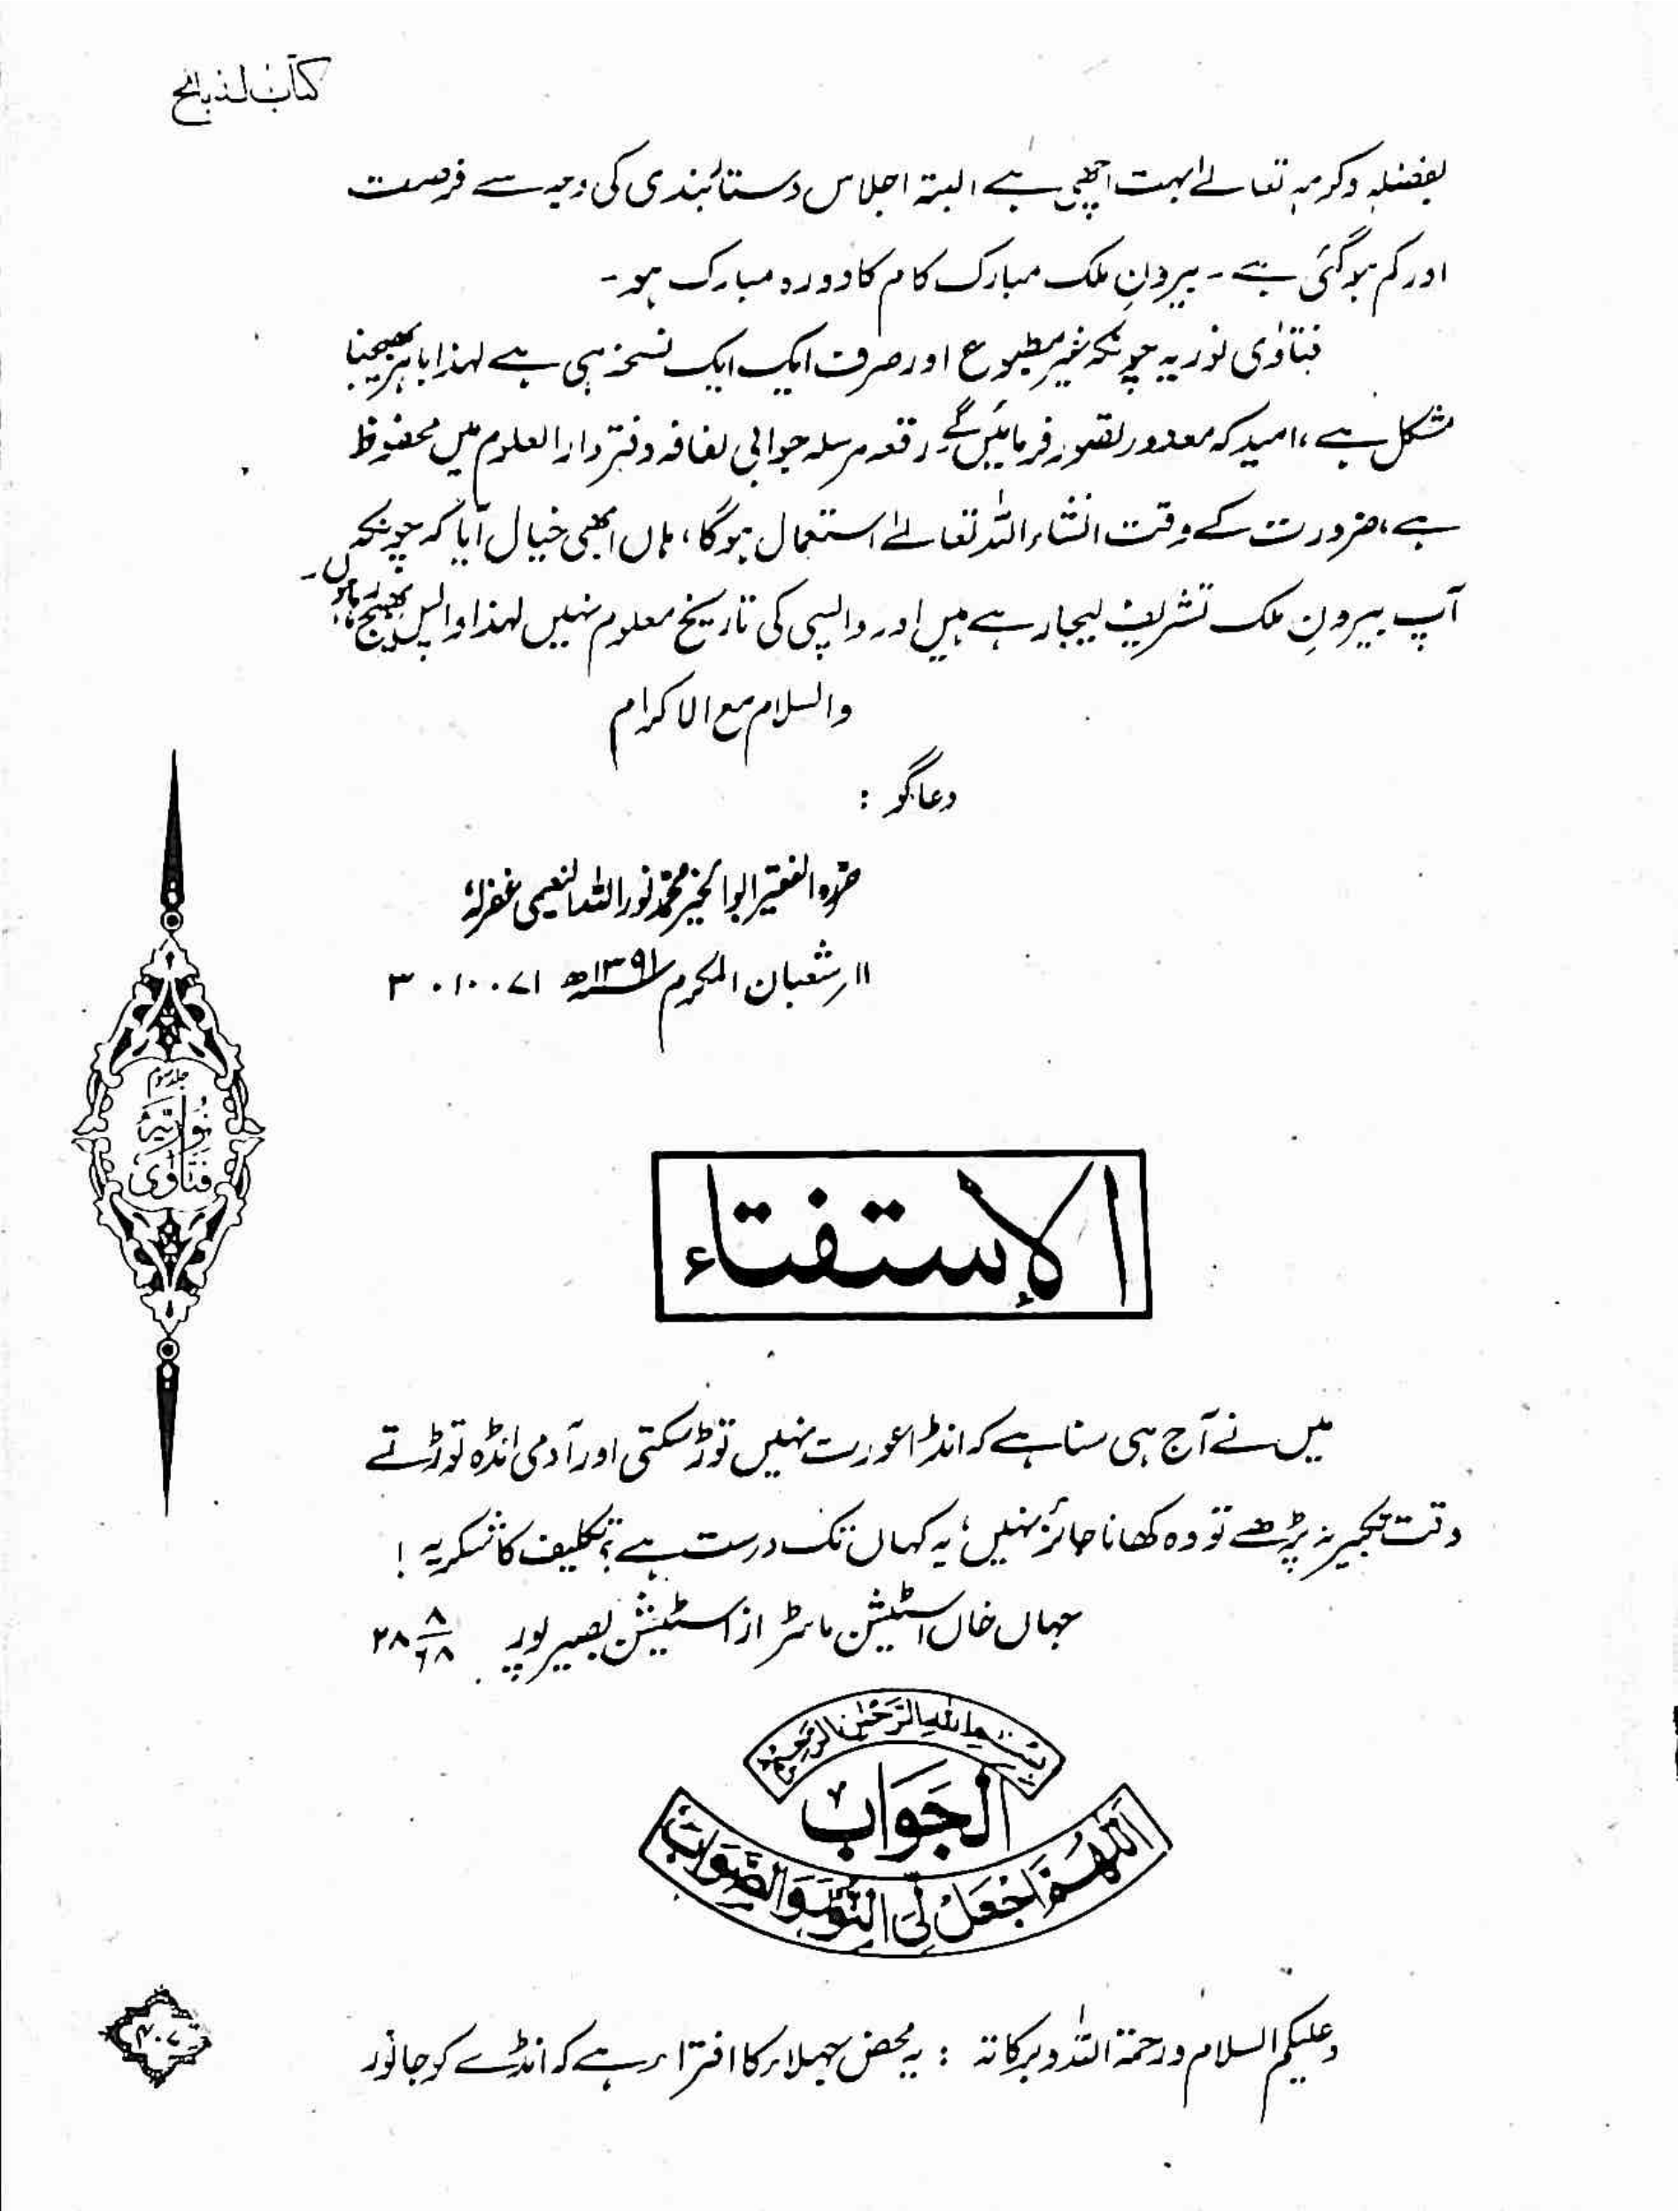 کتاب الذبائح
بفضلہٖ وکرمہٖ تعالےٰ بہت اچھی ہے، البتہ اجلاس دستاربندی کی وجہ سے فرصت
اور کم ہوگئی ہے۔ بیرونِ ملک مبارک کام کا دورہ مبارک ہو۔
فتاوٰی نوریہ چونکہ غیر مطبوع اور صرف ایک ایک نسخہ ہی ہے لہذا باہر بھیجنا
مشکل ہے، امید کہ معذور تصور فرمائیں گے۔ رقعہ مرسلہ جوابی لفافہ دفتر دارالعلوم میں محفوظ
ہے، ضرورت کے وقت انشاء اللہ تعالےٰ استعمال ہوگا، ہاں ابھی خیال آیا کہ چونکہ
آپ بیرونِ ملک تشریف لیجا رہے ہیں اور واپسی کی تاریخ معلوم نہیں لہذا واپس بھیج رہا ہوں۔
والسلام مع الاکرام
دعاگو :
حررہ الفقیر ابوالخیر محمد نور اللہ النعیمی غفرلہٗ
۱۱؍ شعبان المکرم ۱۳۹۱ھ ۷۱ ۔ ۱۰ ۔ ۳
جلد سوم
نوریہ
فتاوٰی
الإستفتاء
میں نے آج ہی سنا ہے کہ انڈا عورت نہیں توڑ سکتی اور آدمی انڈہ توڑتے
وقت تکبیر نہ پڑھے تو وہ کھانا جائز نہیں، یہ کہاں تک درست ہے؟ تکلیف کا شکریہ !
جہاں خاں اسٹیشن ماسٹر از اسٹیشن بصیر پور ۲۸ ۸/۶۸
بسم الله الرحمٰن الرحيم
الجَوَابُ
اَللّٰهُمَّ اجْعَلْ لِّيَ النُّوْرَ وَالصَّوَابَ
وعلیکم السلام ورحمۃ اللہ وبرکاتہ : یہ محض جہلاء کا افتراء ہے کہ انڈے کو جانور
۴۰۷